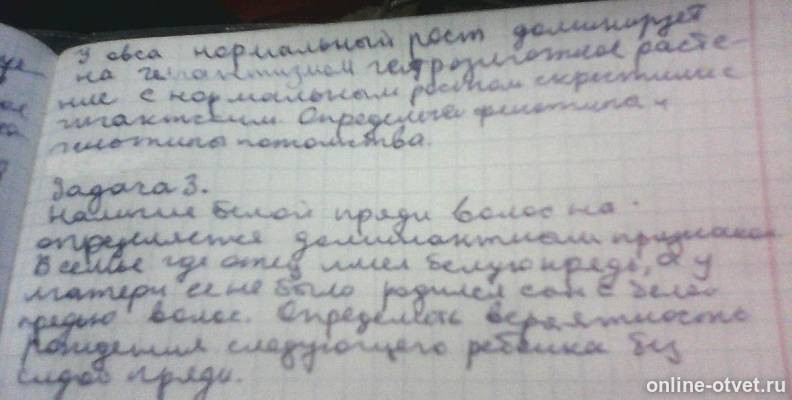 У овса нормальный рост доминирует
на гигантизмом гетрозиготное расте-
ние с нормальным ростом скрестили с
гигантским. Определите фенотипа и
генотипы потомства.
Задача 3.
Наличие белой пряди волос на
определяется доминантным признаком
В семье где отец имел белую прядь, а у
матери ее не было родился сын с бело
прядью волос. Определить вероятность
рождения следующего ребенка без
пряди.
online-otvet.ru